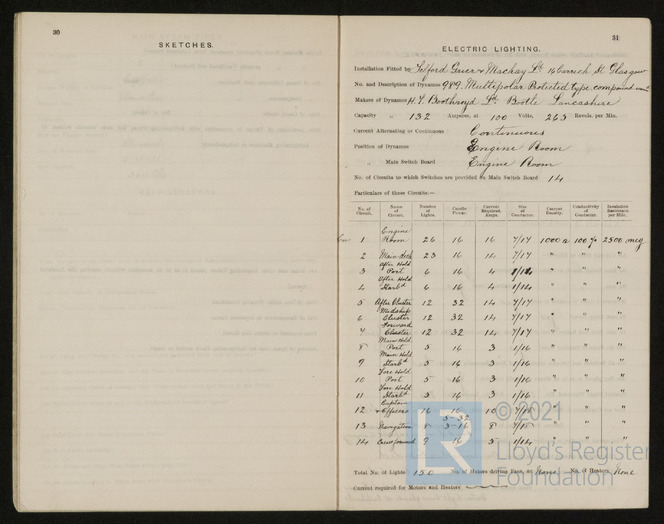 30
SKETCHES.
31
ELECTRIC LIGHTING.
Installation Fitted by Telford Grier & Mackay Ld 16 Carrick St Glasgow
No. and Description of Dynamos 989. Multipolar Protected type compound
Makers of Dynamos H. T. Boothroyd Ld Bootle Lancashire
Capacity „ 132 Amperes, at 100 Volts, 263 Revols. per Min.
Current Alternating or Continuous Continuous
Position of Dynamos Engine Room
„ Main Switch Board Engine Room
No. of Circuits to which Switches are provided on Main Switch Board 14
Particulars of these Circuits:—
No. of Circuit. Name of Circuit. Number of Lights. Candle Power. Current Required, Amps. Size of Conductor. Current Density. Conductivity of Conductor. Insulation Resistance per Mile.
1 Engine Room 26 16 16 7/17 1000 a 100 % 2500 meg
2 Main deck 23 16 14 7/17 " " "
3 After Hold Port 6 16 4 1/14 " " "
4 After Hold Starbd 6 16 4 1/14 " " "
5 After Cluster 12 32 14 7/17 " " "
6 Midships Cluster 12 32 14 7/17 " " "
7 Forward Cluster 12 32 14 7/17 " " "
8 Main Hold Port 5 16 3 1/16 " " "
9 Main Hold Starbd 5 16 3 1/16 " " "
10 Fore Hold Port 5 16 3 1/16 " " "
11 Fore Hold Starbd 5 16 3 1/16 " " "
12 Captain & Officers 16 16 10 7/18 " " "
13 Navigation 8 3-32 5-16 8 7/18 " " "
14 9 16 5 1/14 " " "
Total No. of Lights 150 No. of Motors driving Fans, &c. None No. of Heaters None
Current required for Motors and Heaters
© 2021
LR
Lloyd's Register
Foundation